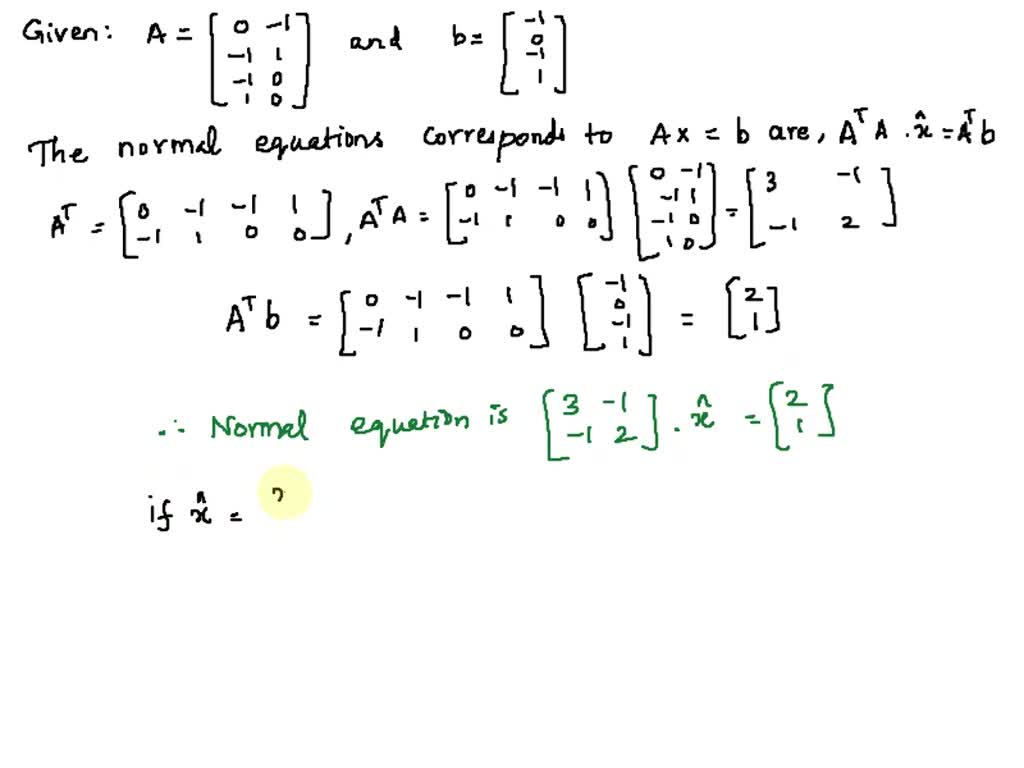 Given: A = [0 -1; -1 1; -1 0; 1 0] and b = [-1; 0; -1; 1]
The normal equations corresponds to Ax = b are, A^T A . x̂ = A^T b
A^T = [0 -1 -1 1; -1 1 0 0], A^T A = [0 -1 -1 1; -1 1 0 0] [0 -1; -1 1; -1 0; 1 0] = [3 -1; -1 2]
A^T b = [0 -1 -1 1; -1 1 0 0] [-1; 0; -1; 1] = [2; 1]
∴ Normal equation is [3 -1; -1 2] . x̂ = [2; 1]
if x̂ =